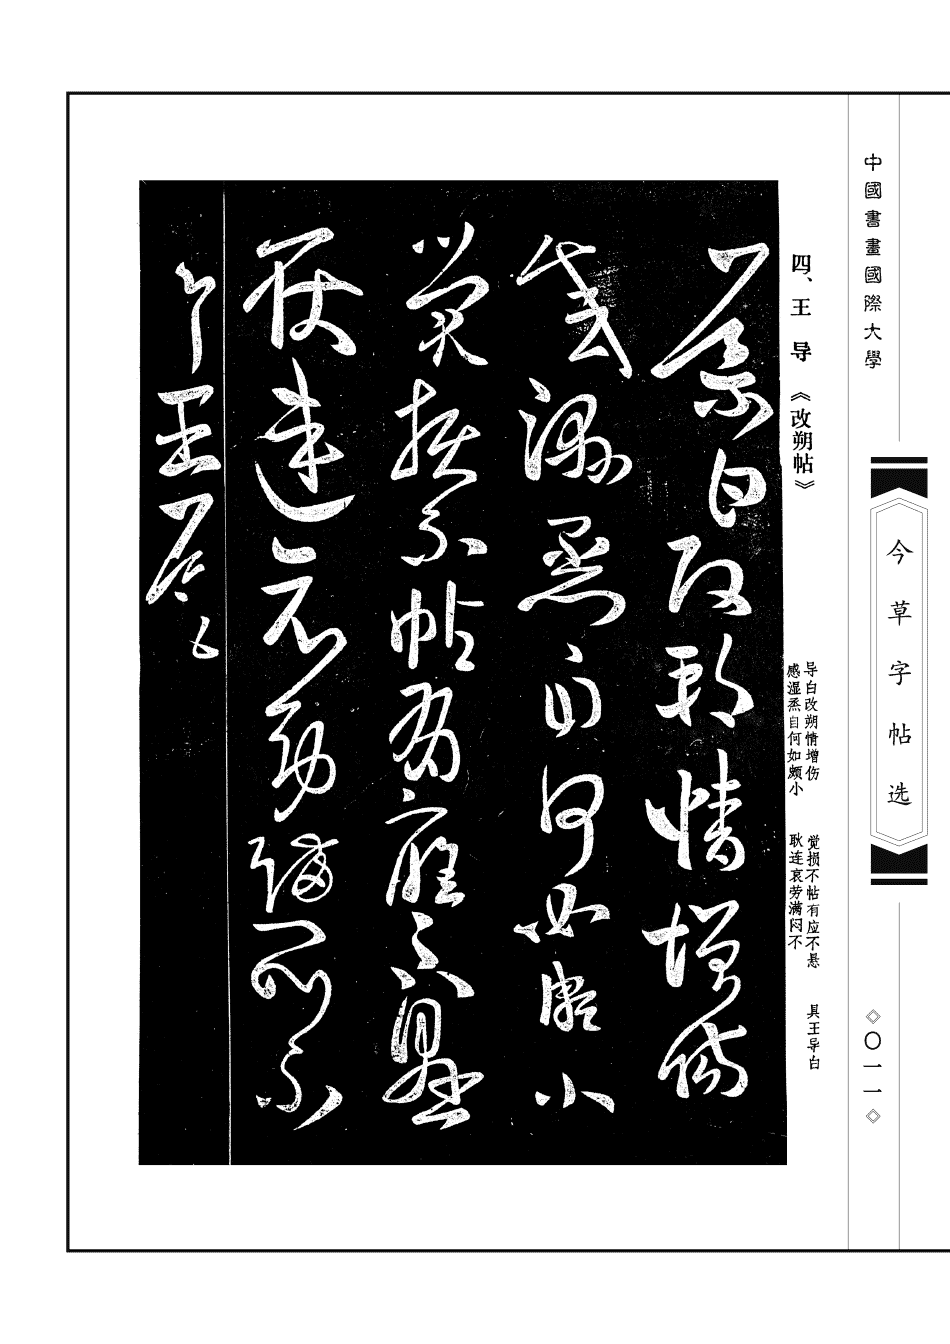 中國書畫國際大學
今草字帖选
◇〇一一◇
四、王 导 《改朔帖》
导白改朔情增伤
感湿烝自何如颇小
觉损不帖有应不悬
耿连哀劳满闷不
具王导白
導白改朔情增傷
感濕烝自何如頗小
覺損不帖有應不懸
耿連哀勞滿悶不
具王導白